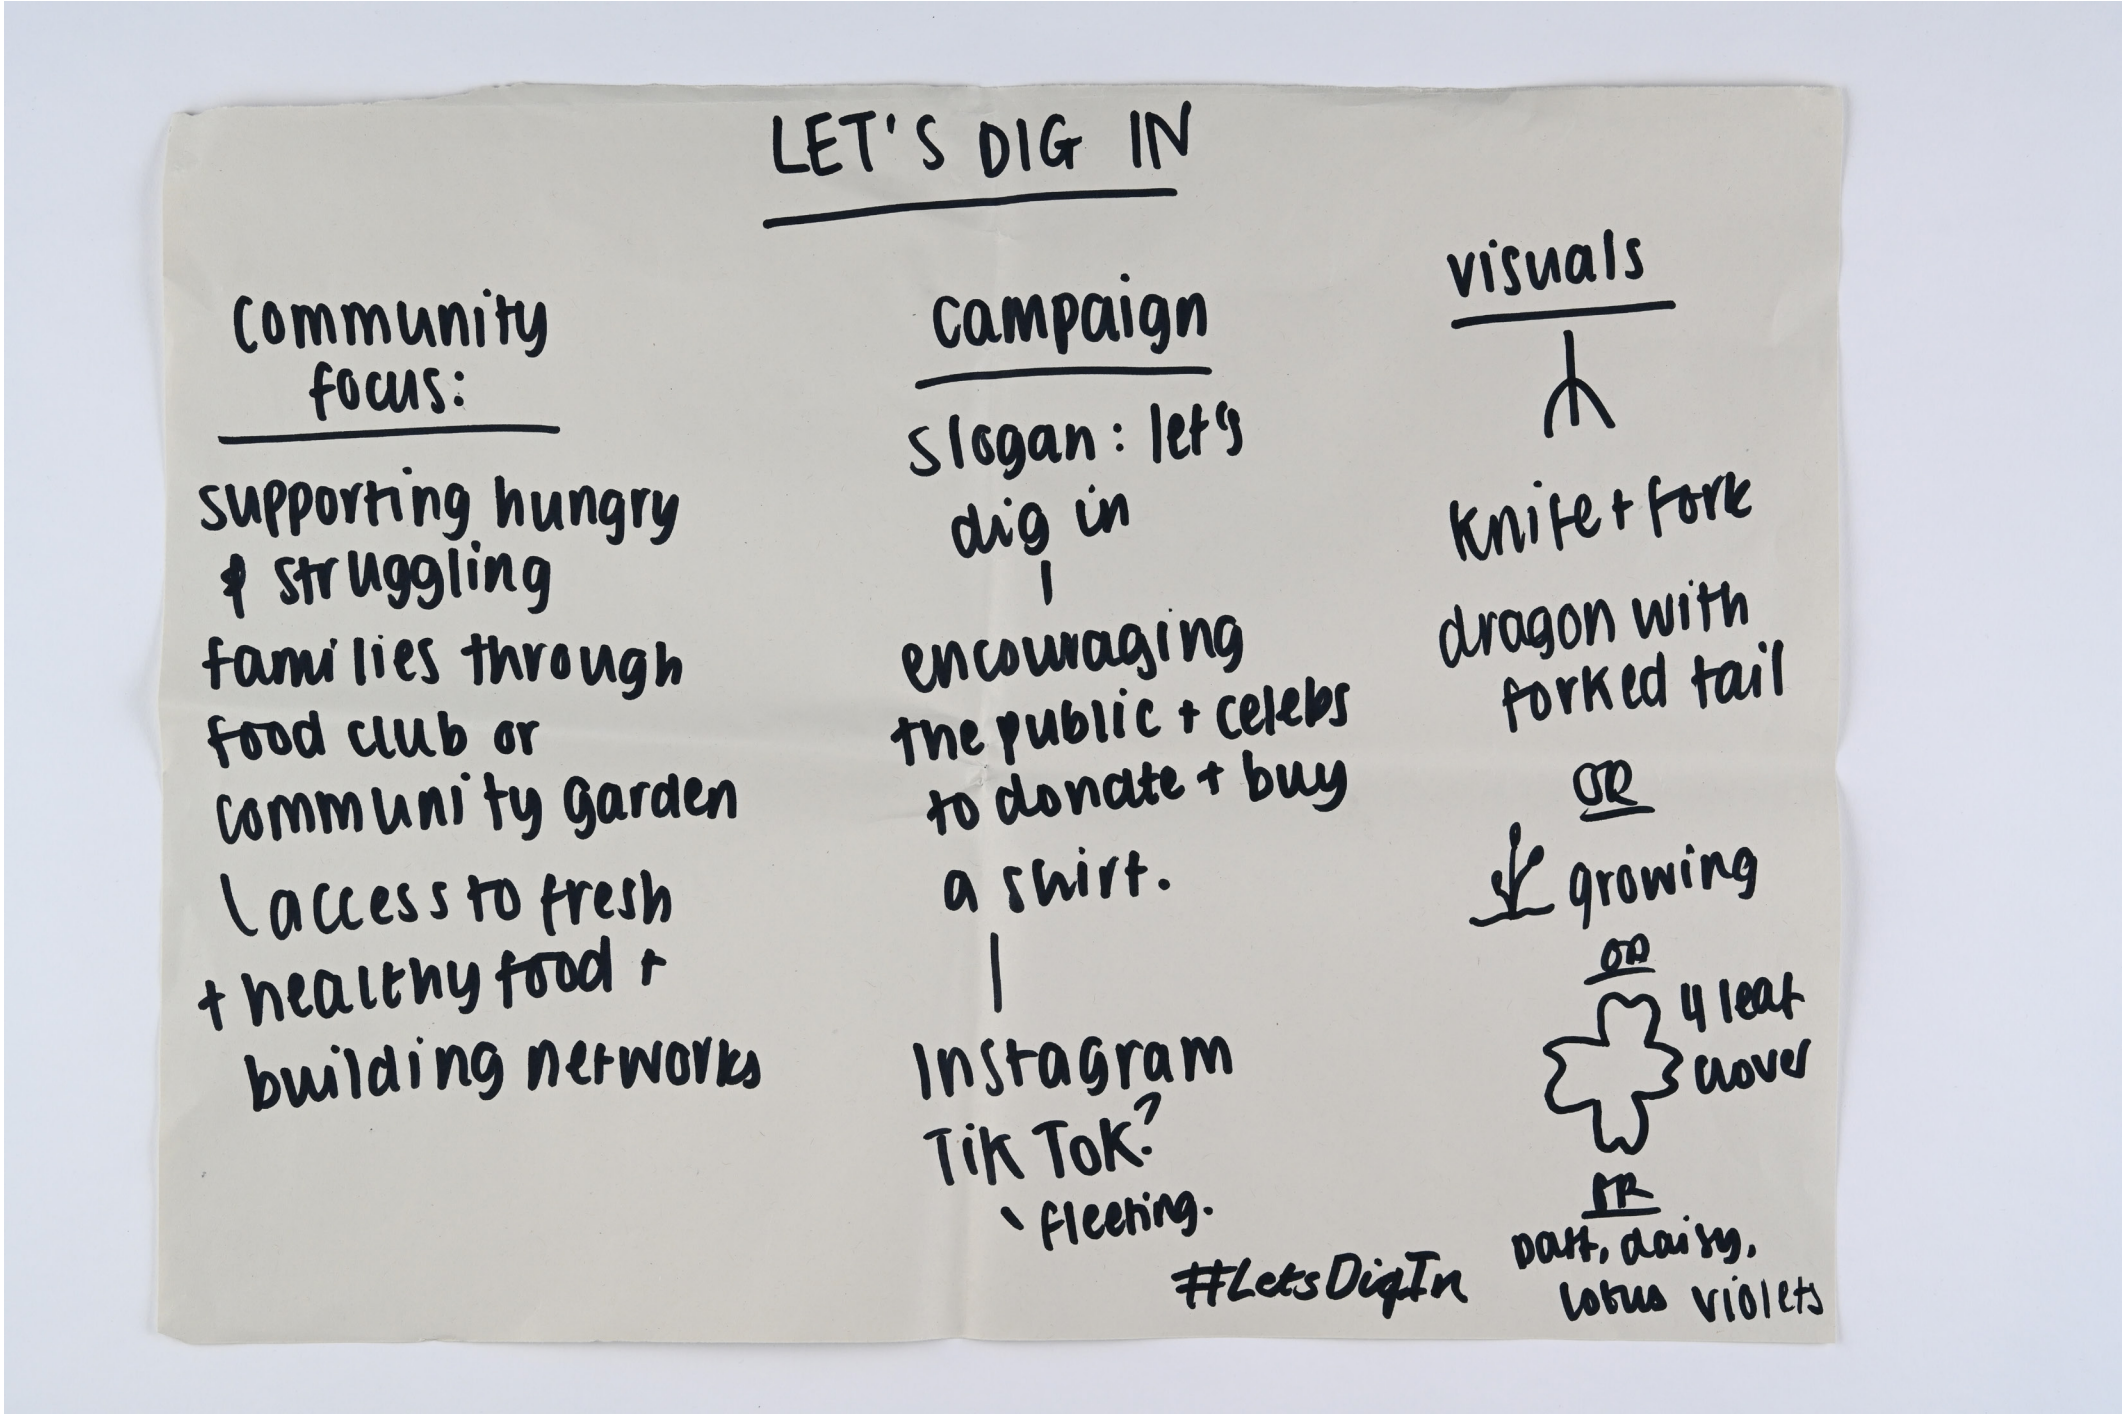 LET'S DIG IN
community
focus:
supporting hungry
& struggling
families through
food club or
community garden
access to fresh
+ healthy food +
building networks
campaign
slogan: let's
dig in
encouraging
the public + celebs
to donate + buy
a shirt.
Instagram
Tik Tok?
fleeting.
#LetsDigIn
visuals
knife + fork
dragon with
forked tail
OR
growing
OR
4 leaf
clover
OR
Daff, daisy,
lotus violets